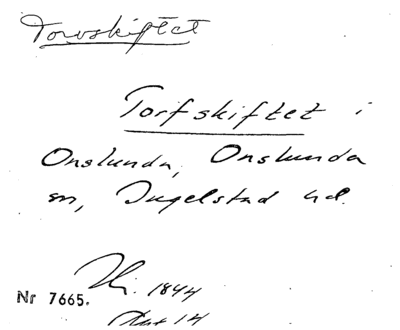 Torvskiftet
Torfskiftet i
Onslunda, Onslunda
sn, Ingelstad hd.
1844
Nr 7665.
14